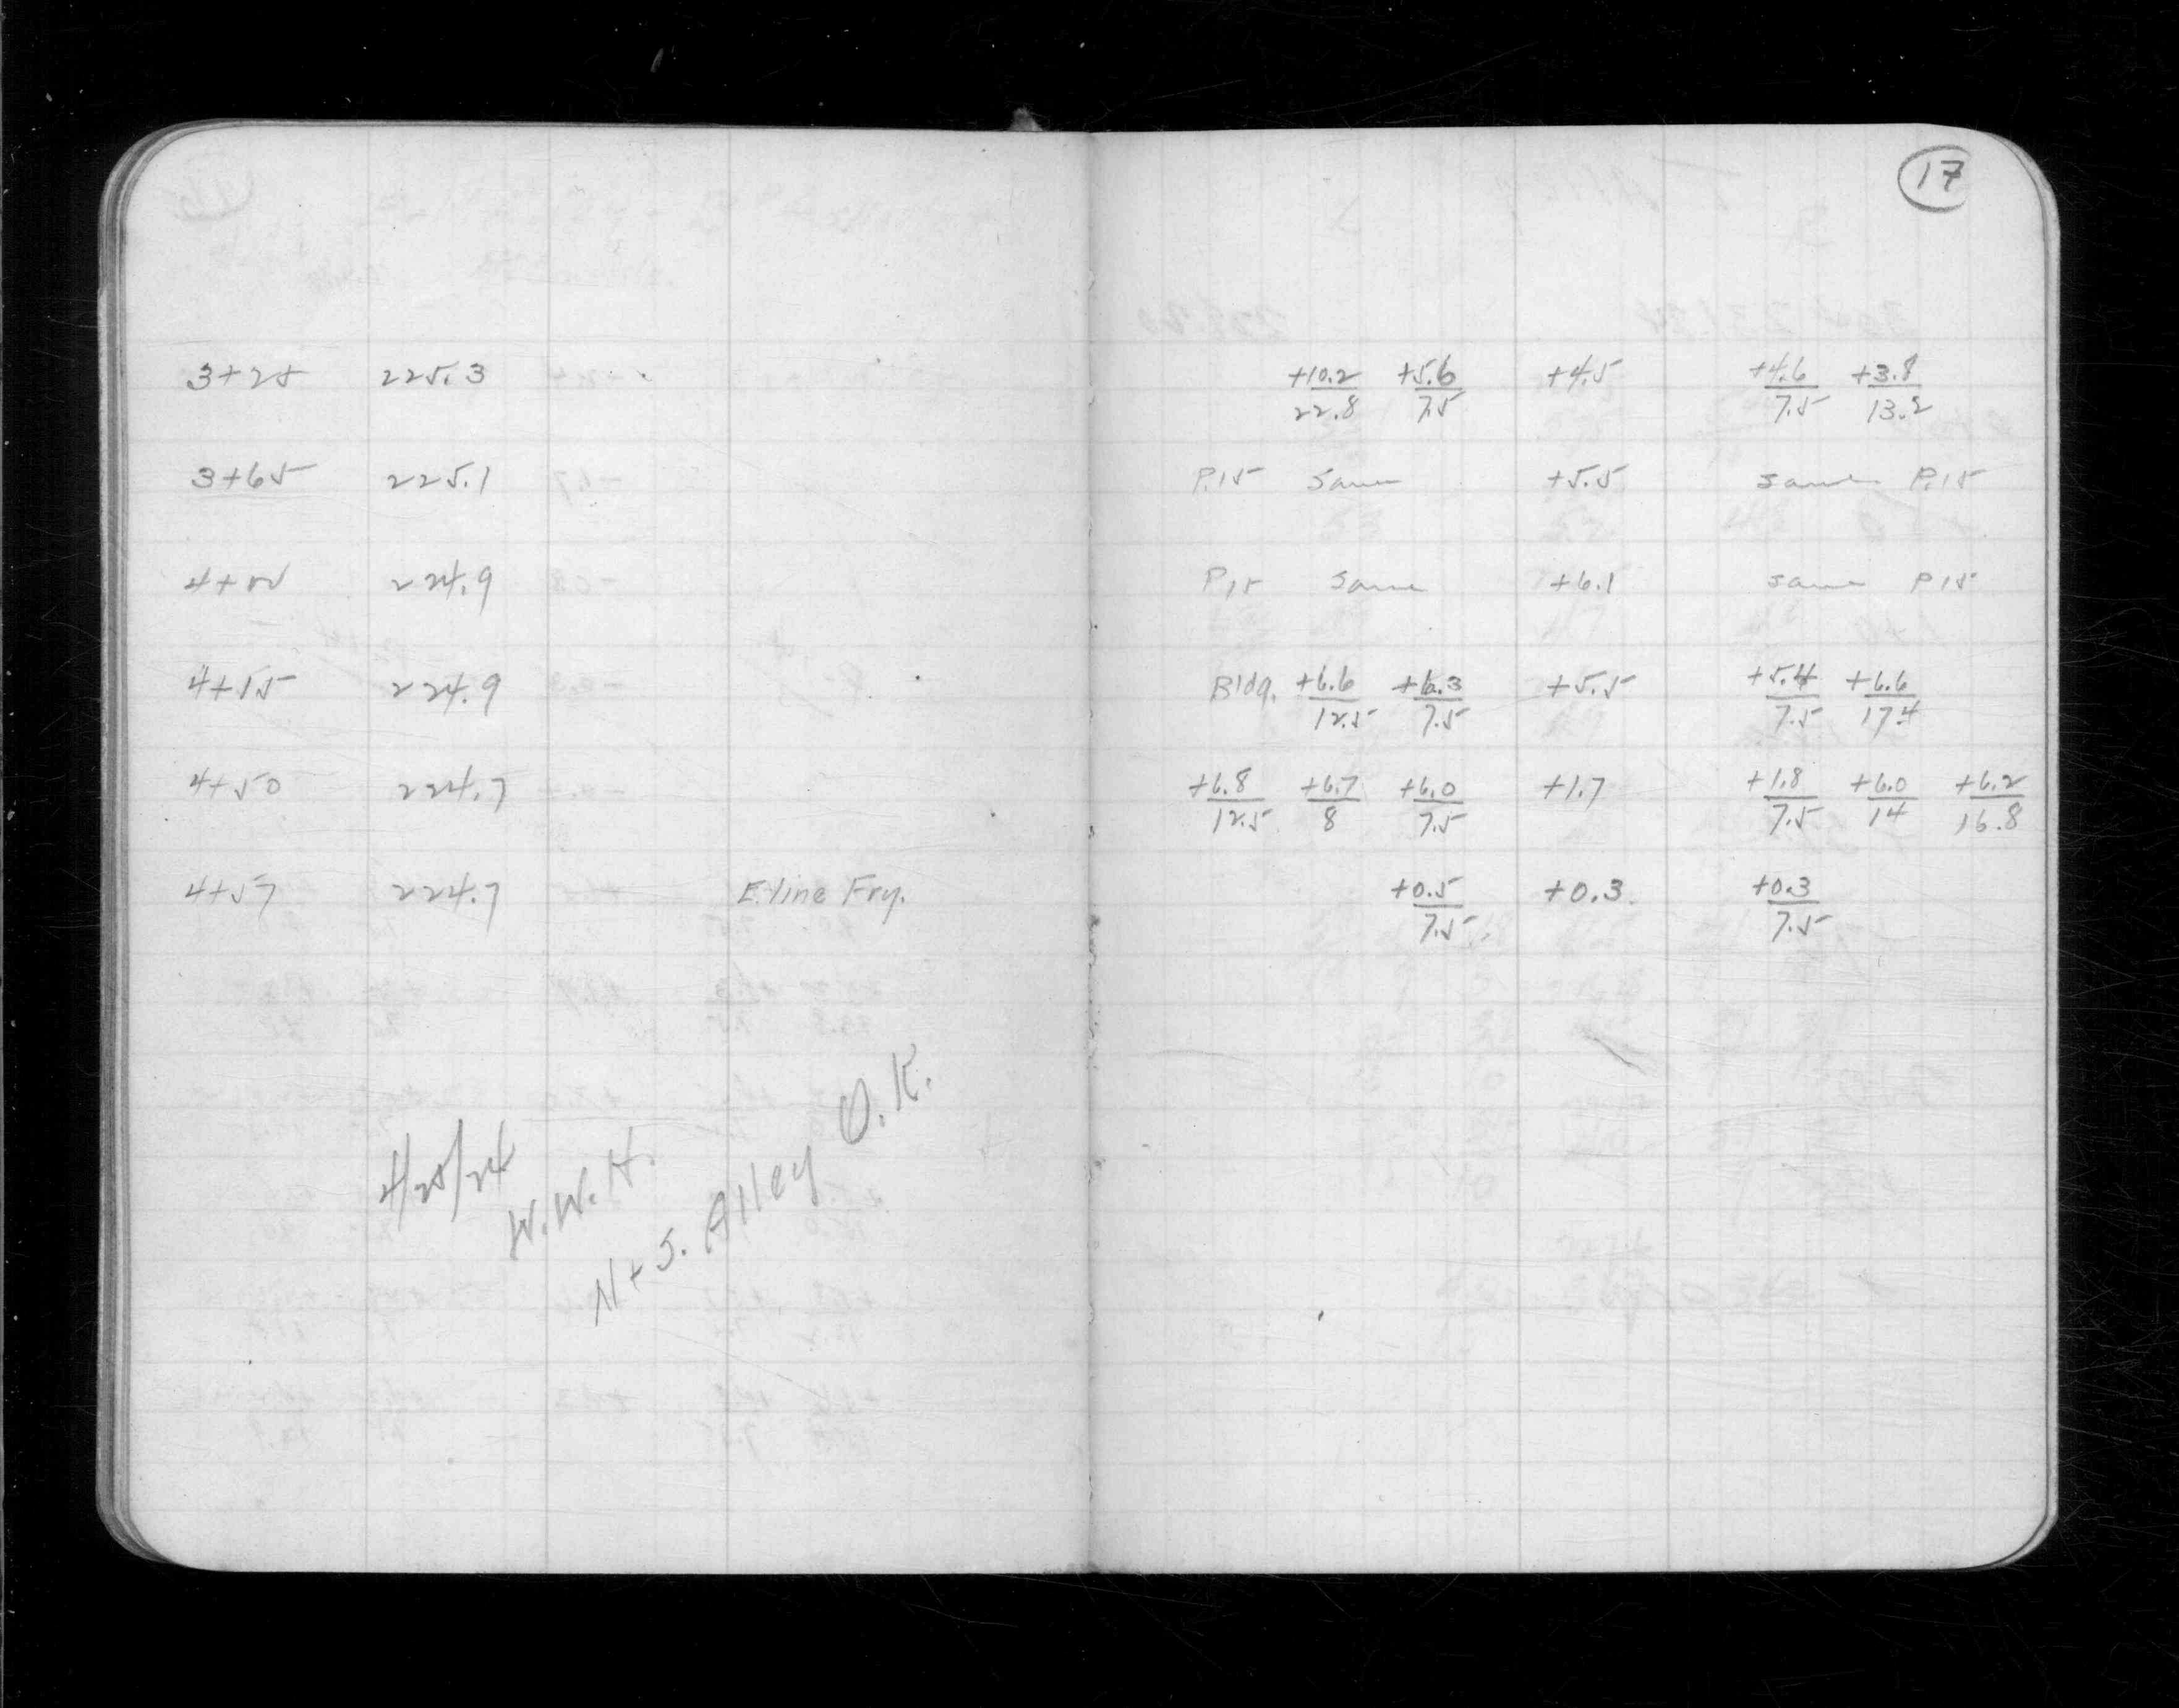 17
3+25 225.3 +10.2/22.8 +5.6/7.5 +4.5 +4.6/7.5 +3.8/13.2
3+65 225.1 P.15 Same +5.5 same P.15
4+00 224.9 P.15 Same +6.1 same P15
4+15 224.9 Bldg. +6.6/12.5 +6.3/7.5 +5.5 +5.4/7.5 +6.6/17.4
4+50 224.7 +6.8/12.5 +6.7/8 +6.0/7.5 +1.7 +1.8/7.5 +6.0/14 +6.2/16.8
4+57 224.7 E. line Fry. +0.5/7.5 +0.3 +0.3/7.5
W.W.H.
N+S. Alley O.K.